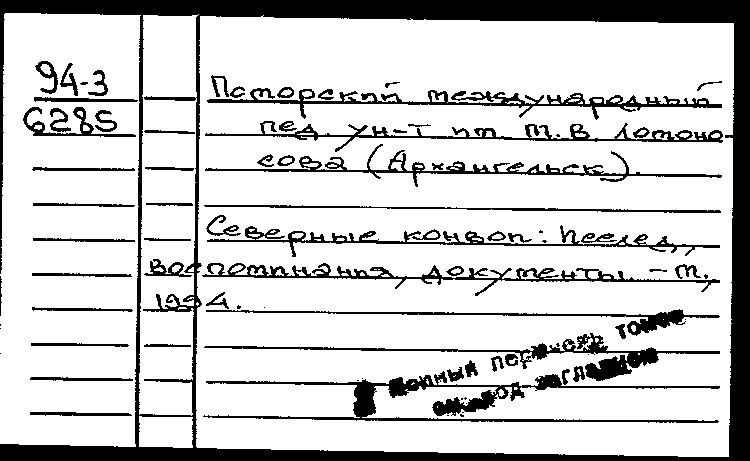 94-3
6285
Поморский международный
пед. ун-т им. М.В. Ломоно-
сова (Архангельск).
Северные конвои: Исслед.,
воспоминания, документы. – М.,
1994.
Полный перечень томов
см. под заглавием